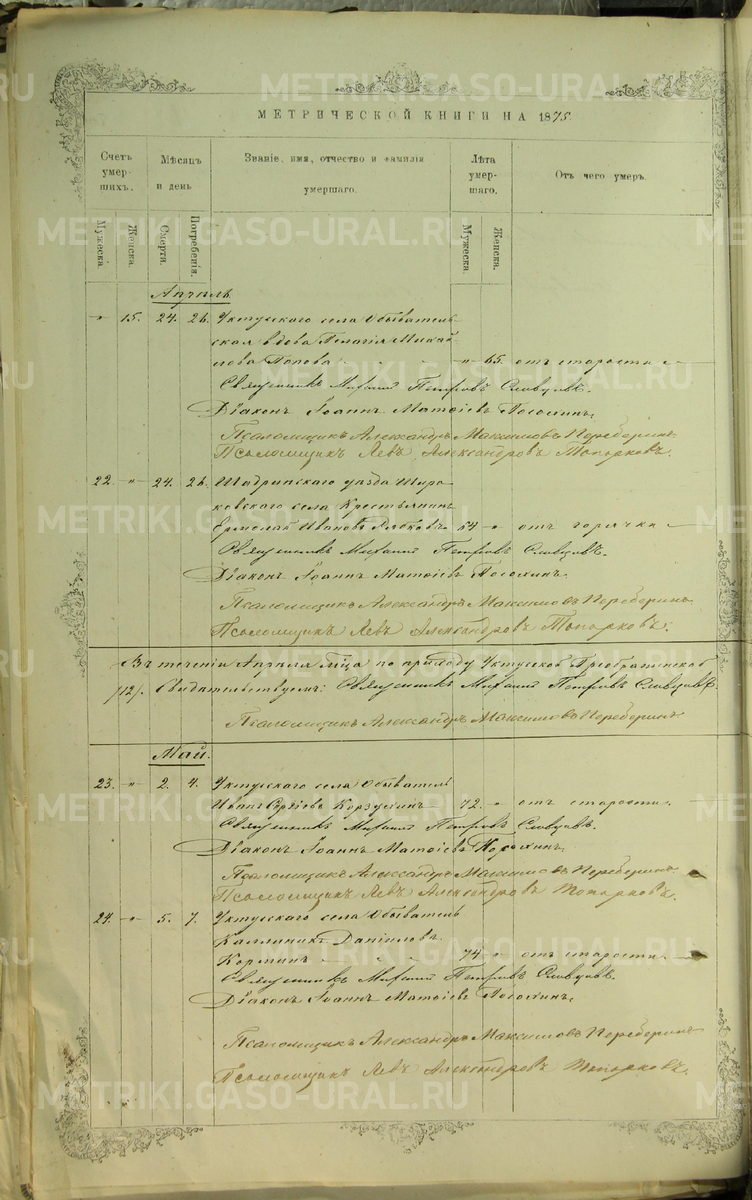 МЕТРИЧЕСКОЙ КНИГИ НА 1875
Счетъ умер-шихъ.
Мѣсяцъ и день
Званіе, имя, отчество и фамилія умершаго.
Лѣта умер-шаго.
Отъ чего умеръ.
Мужеска. Женска. Смерти. Погребенія. Мужеска. Женска.
Апрѣль
" 15. 24. 26. Уктусскаго села Обыватель-
ская вдова Пелагія Михай
лова Попова " 65. отъ старости
Священникъ Михаилъ Петровъ Словцовъ.
Діаконъ Іоаннъ Матѳіевъ
Псаломщикъ Александръ Максимовъ Переберинъ
Псаломщикъ Левъ Александровъ Топорковъ.
22. " 24. 26. Шадринскаго уѣзда Широ-
ковскаго села Крестьянинъ
Ивановъ 54 " отъ горячки
Священникъ Михаилъ Петровъ Словцовъ.
Діаконъ Іоаннъ Матѳіевъ
Псаломщикъ Александръ Максимовъ Переберинъ
Псаломщикъ Левъ Александровъ Топорковъ.
Въ теченіи Апрѣля м͠ца по приходу Уктусской Преображенской
/12/. Свидѣтельствуемъ: Священникъ Михаилъ Петровъ Словцовъ.
Псаломщикъ Александръ Максимовъ Переберинъ
Май.
23. " 2. 4. Уктусскаго села Обыватель
Иванъ Сергіевъ Корзухинъ 72. " отъ старости.
Священникъ Михаилъ Петровъ Словцовъ.
Діаконъ Іоаннъ Матѳіевъ
Псаломщикъ Александръ Максимовъ Переберинъ
Псаломщикъ Левъ Александровъ Топорковъ.
24. " 5. 7. Уктусскаго села Обыватель
Каллиникъ Даніиловъ
74 " отъ старости
Священникъ Михаилъ Петровъ Словцовъ.
Діаконъ Іоаннъ Матѳіевъ
Псаломщикъ Александръ Максимовъ Переберинъ
Псаломщикъ Левъ Александровъ Топорковъ.
METRIKI.GASO-URAL.RU